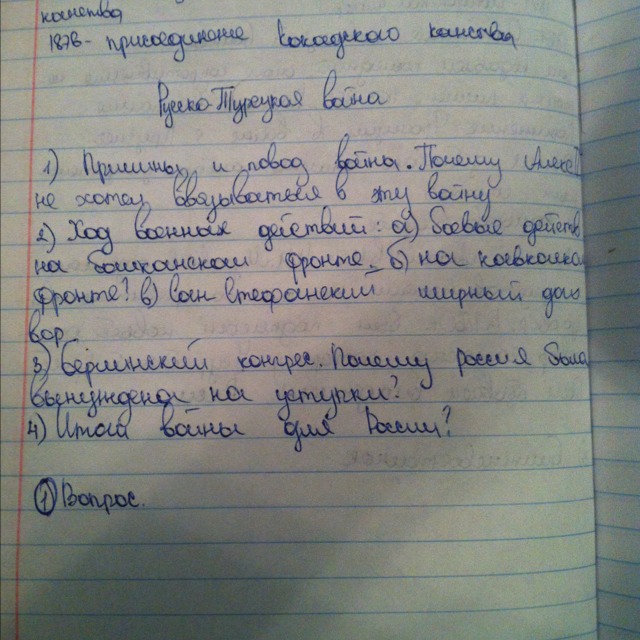 ханства
1876- присоединение кокадского ханства
Русско-Турецкая война
1) Причины и повод война. Почему Алекс II
не хотел ввязываться в эту войну
2) Ход военных действий: а) боевые действ
на балканском фронте. б) на кавказком
фронте? в) сан стефанский мирный дого
вор.
3) Берлинский конгрес. Почему россия была
вынуждена на уступки?
4) Итоги войны для России?
1 Вопрос.